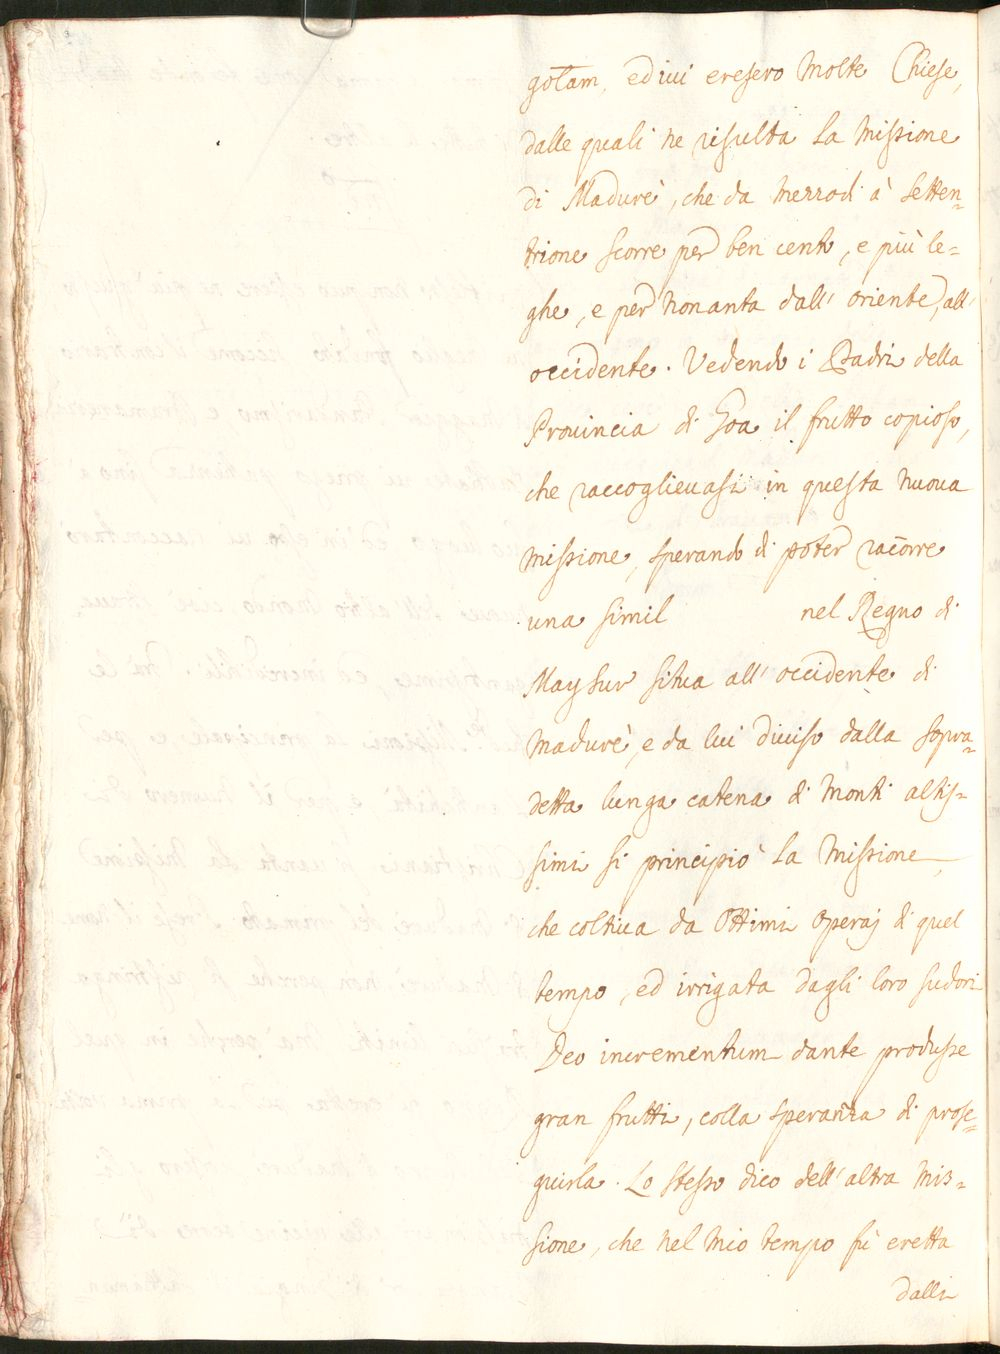 gotam, ed iui eresero molte Chiese,
dalle quali ne risulta la Missione
di Madurè, che da merzodi à Setten=
trione scorre per ben cento, e più le=
ghe, e per nonanta dall' oriente, all'
occidente. Vedendo i Padri della
Prouincia di Goa il frutto copioso,
che raccoglieuasi in questa nuoua
missione, sperando di poter racorre
una simil nel Regno di
Maysur situa all' occidente di
Madurè, e da lui diuiso dalla sopra=
detta lunga catena di Monti altis=
simi si principiò la Missione,
che coltiua da Ottimi Operaj di quel
tempo, ed irrigata dagli loro sudori
Deo incrementum dante produsse
gran frutti, colla speranza di prose=
guirla. Lo stesso dico dell' altra Mis=
sione, che nel mio tempo fù eretta
dalli